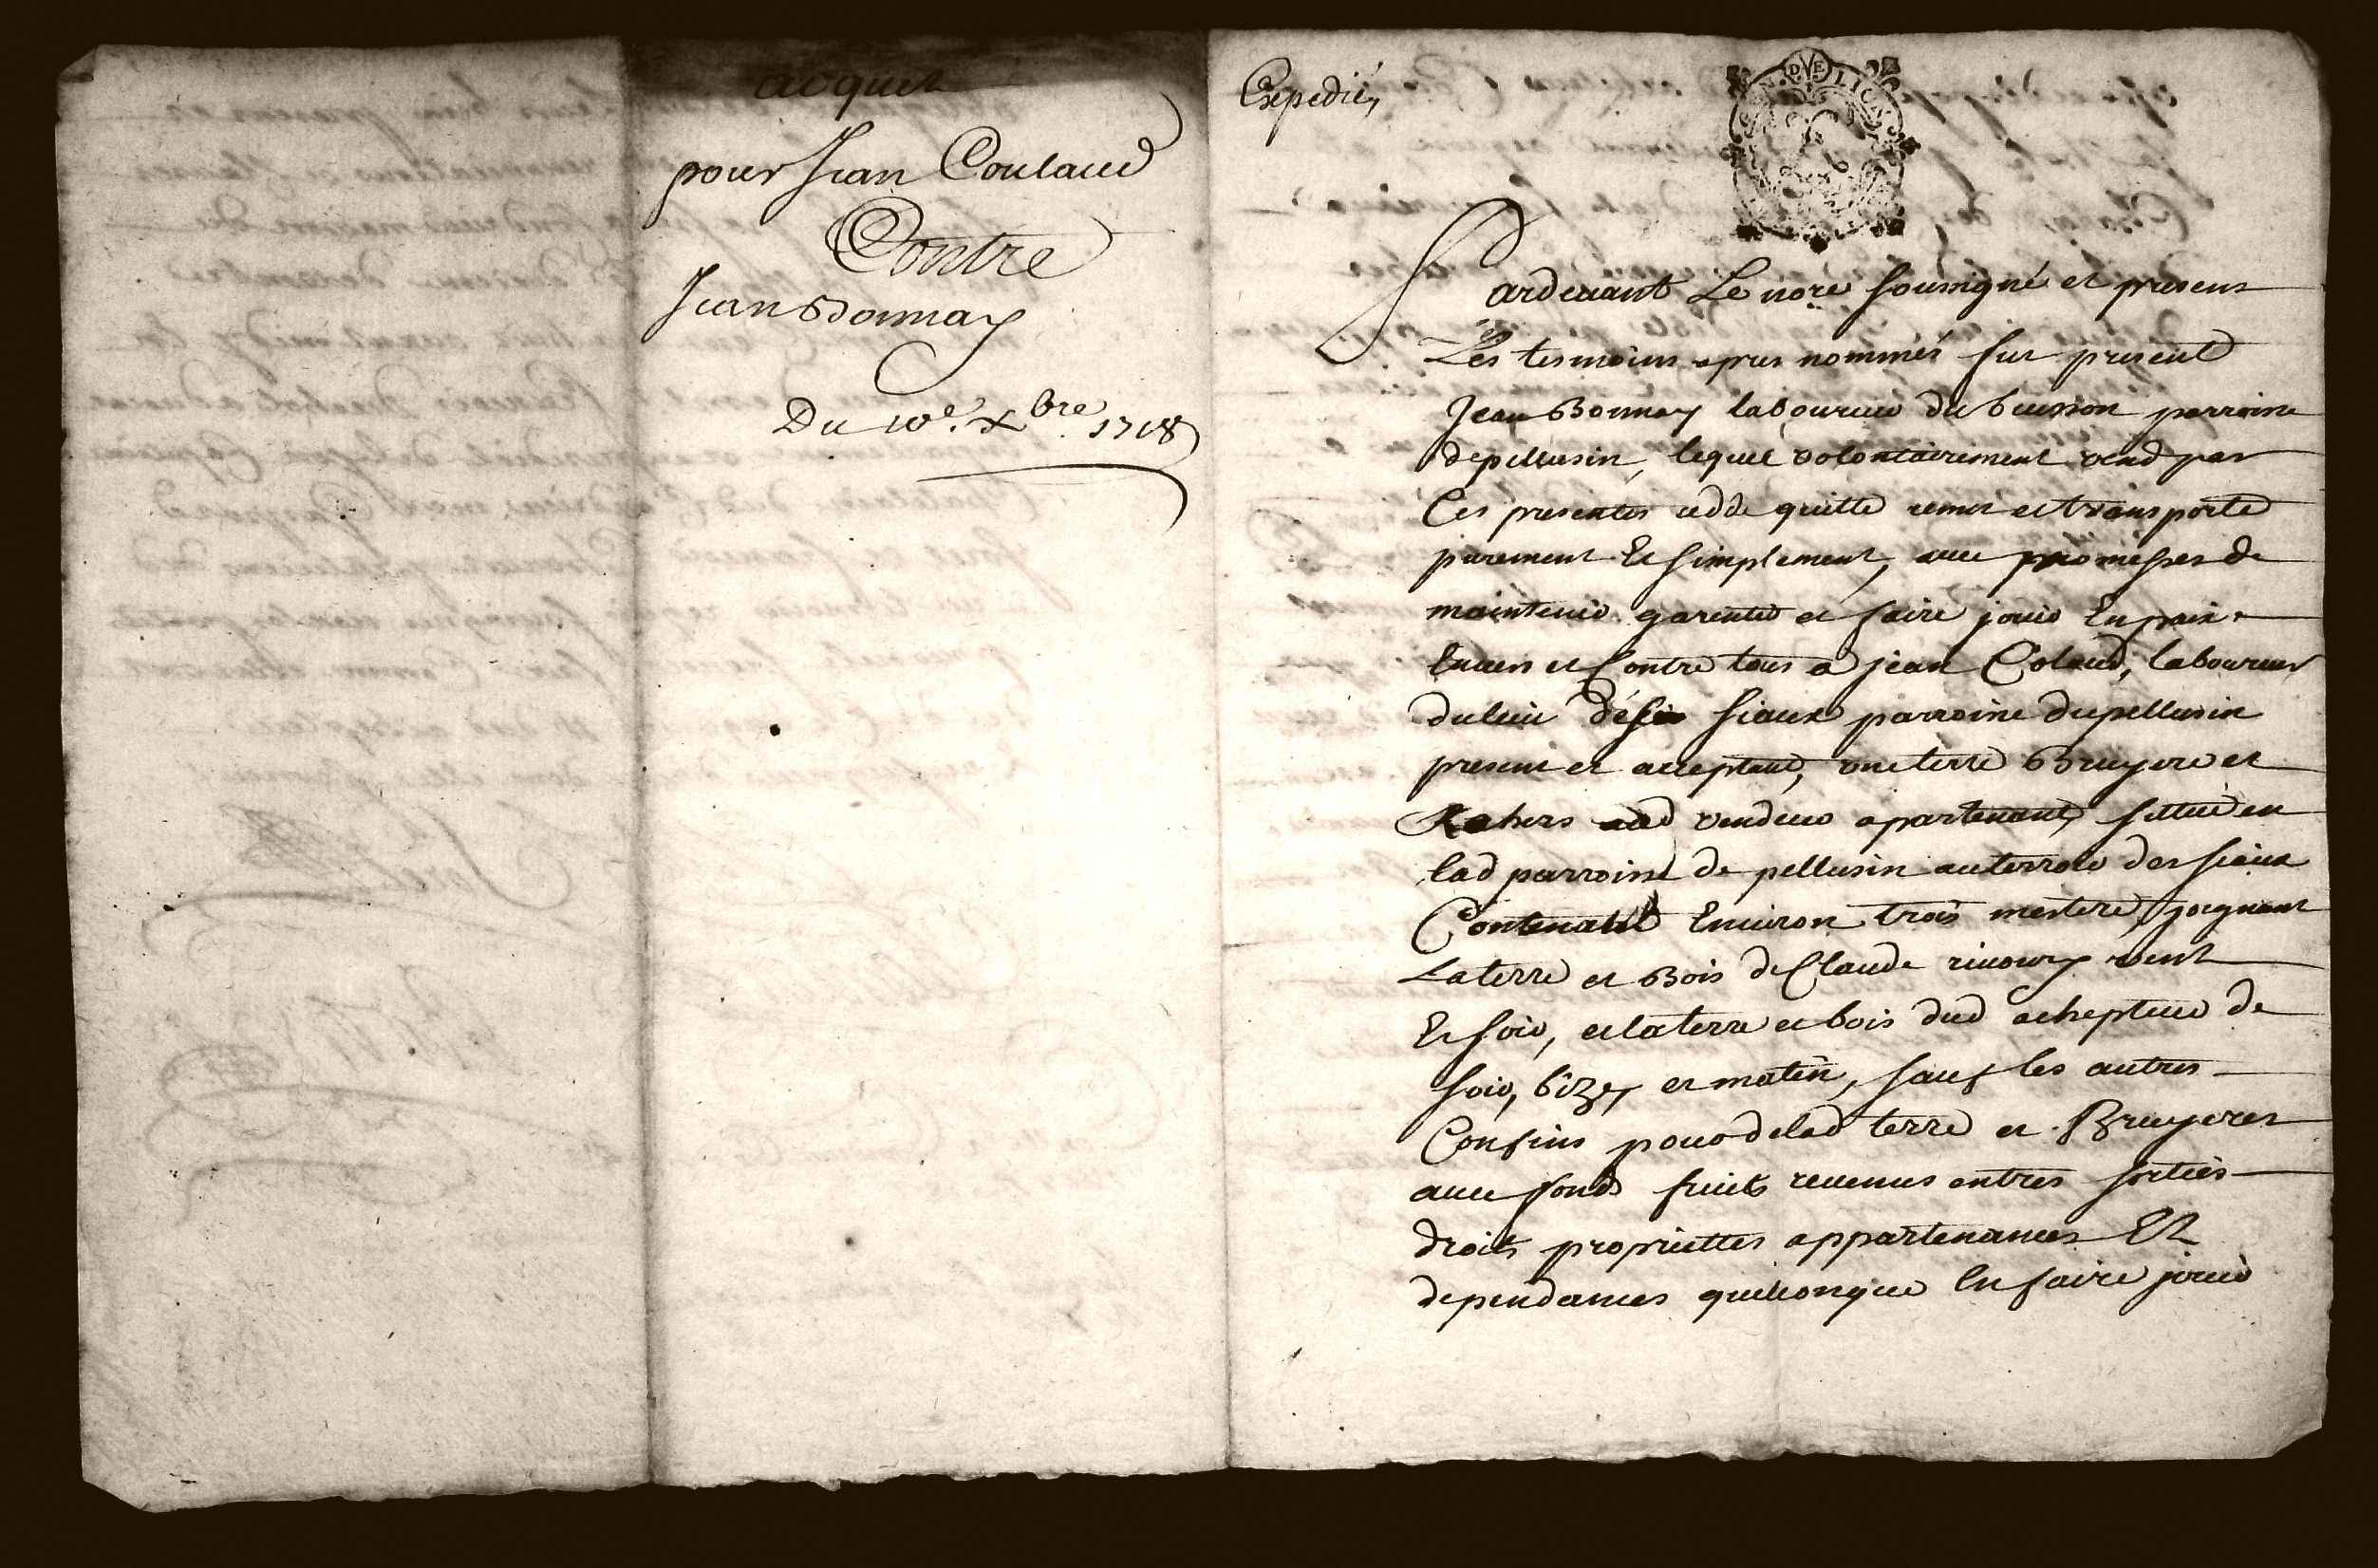 acquit
pour Jean Coulaud
Contre
Jean Bonnay
Du 10e. Xbre. 1718
Expedié,
GEN. DE LION
Pardevant Le nore soussigné et presens
Les tesmoins apres nommés fut present
Jean Bonnay laboureur du buisson parroisse
de pellussin, lequel volontairement vend par
Ces presentes cedde quitte remet et transporte
purement Et simplement, avec promesses de
maintenir garentir et faire jouir En paix
Envers et Contre tous a jean Colaud, laboureur
du lieu des siaux parroisse du pellussin
present et acceptant, une terre Bruyere et
Rochers aud vendeur apartenant, sittué en
lad parroisse de pellussin au terroir des siaux
Contenant Environ trois mestere, joignant
La terre et Bois de Claude rivory vent
Et soir, et la terre et bois dud achepteur de
soir, bize, et matin, sauf les autres
Confins pour de lad terre et Bruyeres
avec fonds fruits revenus entres sorties
droits propriettes appartenances Et
dependances quelconque En faire jouir